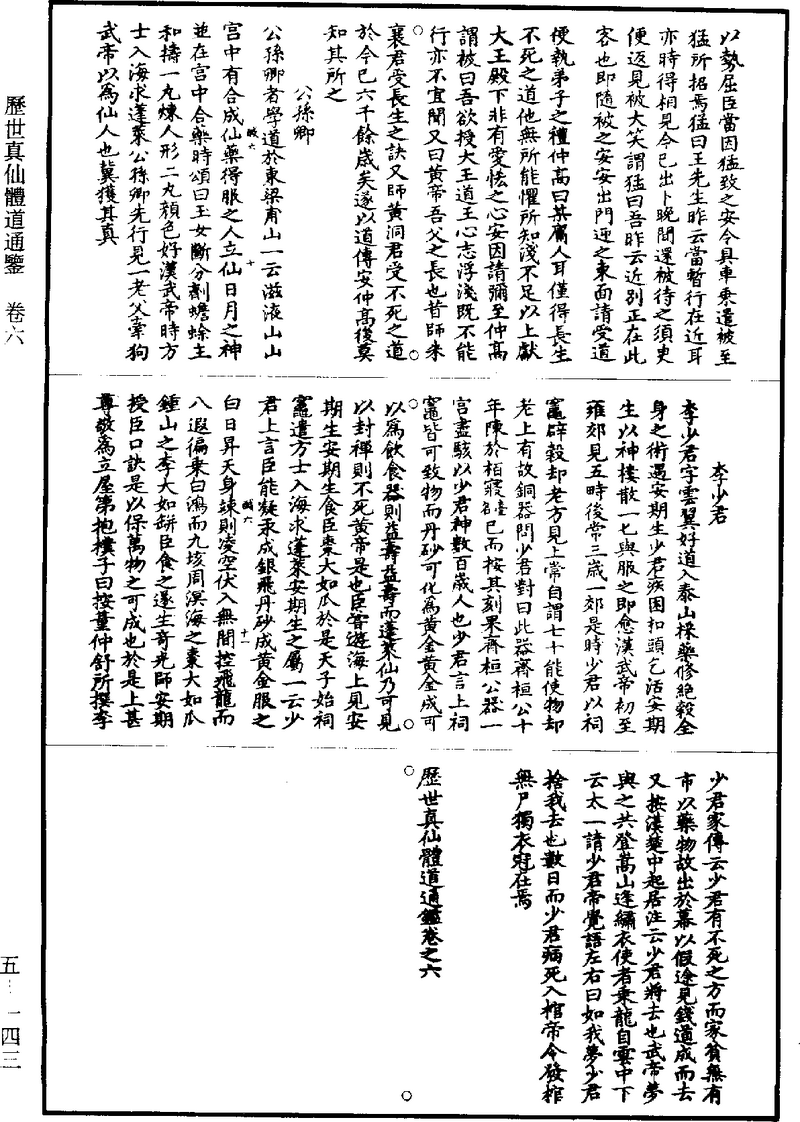 以勢屈臣當因猛致之安令具車乘遣被至
猛所招焉猛曰王先生昨云當暫行在近耳
亦時得相見今已出卜晚間還被待之須臾
便返見被大笑謂猛曰吾昨云近別正在此
客也即隨被之安安出門迎之東面請受道
便執弟子之禮仲高曰某屬人耳僅得長生
不死之道他無所能懼所知淺不足以上獻
大王殿下非有愛恡之心安因請彌至仲高
謂被曰吾欲授大王道王心志浮淺既不能
行亦不宜聞又曰黃帝吾父之長也昔師朱
襄君受長生之訣又師黃洞君受不死之道
於今已六千餘歲矣遂以道傳安仲高後莫
知其所之
公孫卿
公孫卿者學道於東梁甫山一云滋液山山
宮中有合成仙藥得服之人立仙日月之神
並在宮中合藥時頌曰玉女斷分劑蟾蜍主
和擣一丸煉人形二丸顏色好漢武帝時方
士入海求蓬萊公孫卿先行見一老父牽狗
武帝以為仙人也冀獲其真
李少君
李少君字雲翼好道入泰山採藥修絕穀全
身之術遇安期生少君疾困扣頭乞活安期
生以神樓散一七與服之即愈漢武帝初至
雍郊見五畤後常三歲一郊是時少君以祠
竈辟穀却老方見上常自謂七十能使物却
老上有故銅器問少君對曰此器齊桓公十
年陳於栢寢已而按其刻果齊桓公器一
宮盡駭以少君神數百歲人也少君言上祠
竈皆可致物而丹砂可化為黃金黃金成可
以為飲食器則益壽益壽而蓬萊仙乃可見
以封禪則不死黃帝是也臣嘗遊海上見安
期生安期生食臣棗大如瓜於是天子始祠
竈遣方士入海求蓬萊安期生之屬一云少
君上言臣能凝汞成銀飛丹砂成黃金服之
白日昇天身竦則凌空伏入無間控飛龍而
八遐徧乘白鴻而九垓周溟海之棗大如瓜
鍾山之李大如缾臣食之遂生奇光師安期
授臣口訣是以保萬物之可成也於是上甚
尊敬為立屋第抱樸子曰按董仲舒所撰李
少君家傳云少君有不死之方而家貧無有
市以藥物故出於幕以假途見錢道成而去
又按漢楚中起居注云少君將去也武帝夢
與之共登嵩山逢繡衣使者乘龍自雲中下
云太一請少君帝覺語左右曰如我夢少君
捨我去也數日而少君病死入棺帝令發棺
無尸獨衣冠在焉
歷世真仙體道通鑑卷之六
歷世真仙體道通鑒 卷六
五 一四三